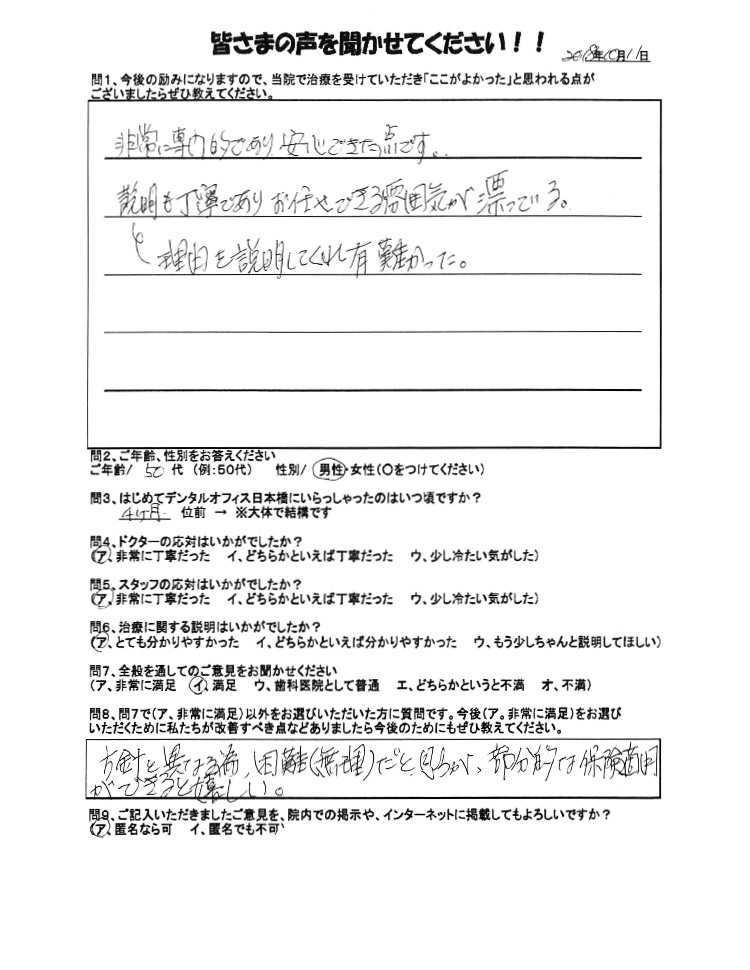 皆さまの声を聞かせてください！！
2018年10月11日
問1、今後の励みになりますので、当院で治療を受けていただき「ここがよかった」と思われる点が
ございましたらぜひ教えてください。
非常に専門的であり安心できた点です。
説明も丁寧でありお任せできる雰囲気が漂っている。
と理由を説明してくれ有難かった。
問2、ご年齢、性別をお答えください
ご年齢/ 50 代 (例:50代) 性別/ 男性・女性(〇をつけてください)
問3、はじめてデンタルオフィス日本橋にいらっしゃったのはいつ頃ですか？
4ヶ月 位前 → ※大体で結構です
問4、ドクターの応対はいかがでしたか？
(ア、非常に丁寧だった イ、どちらかといえば丁寧だった ウ、少し冷たい気がした)
問5、スタッフの応対はいかがでしたか？
(ア、非常に丁寧だった イ、どちらかといえば丁寧だった ウ、少し冷たい気がした)
問6、治療に関する説明はいかがでしたか？
(ア、とても分かりやすかった イ、どちらかといえば分かりやすかった ウ、もう少しちゃんと説明してほしい)
問7、全般を通してのご意見をお聞かせください
(ア、非常に満足 イ、満足 ウ、歯科医院として普通 エ、どちらかというと不満 オ、不満)
問8、問7で(ア、非常に満足)以外をお選びいただいた方に質問です。今後(ア。非常に満足)をお選び
いただくために私たちが改善すべき点などありましたら今後のためにもぜひ教えてください。
方針と異なる為、困難(無理)だと思うが、部分的な保険適用
ができると嬉しい。
問9、ご記入いただきましたご意見を、院内での掲示や、インターネットに掲載してもよろしいですか？
(ア、匿名なら可 イ、匿名でも不可